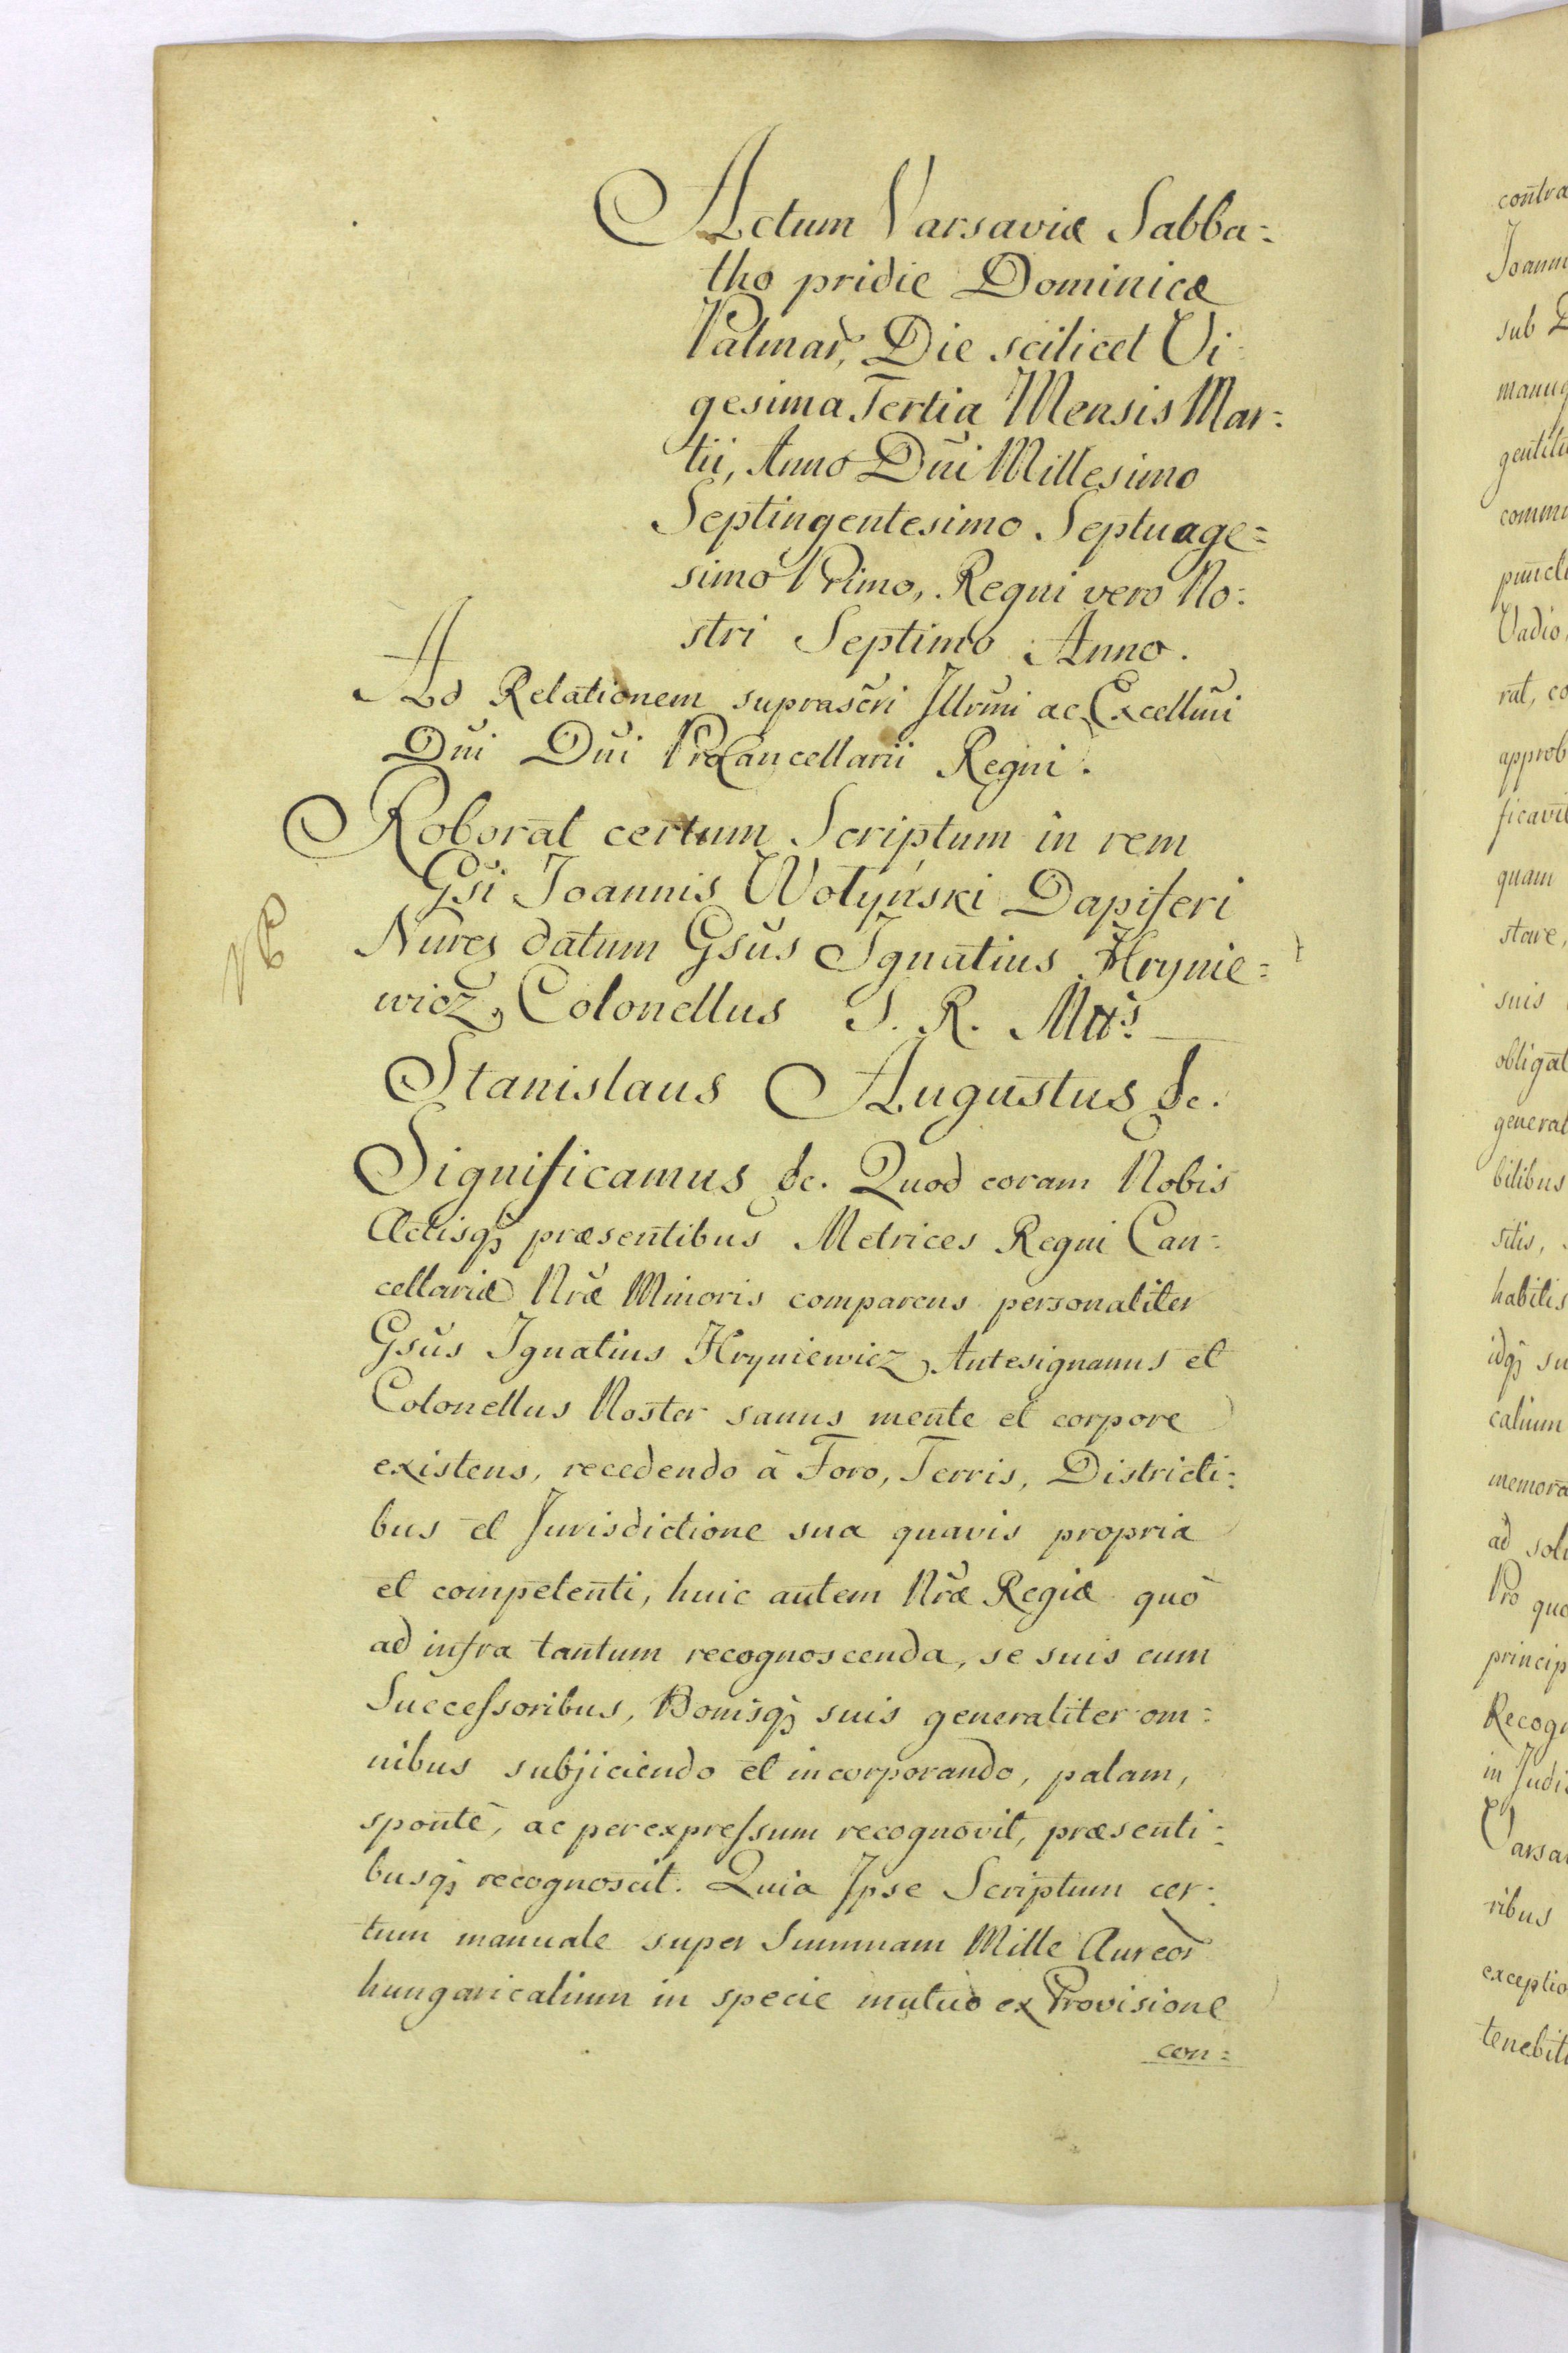 Actum Varsaviæ Sabba=
tho pridie Dominicæ
Palmar̃, Die scilicet Vi=
gesima Tertia Mensis Mar=
tii, Anno Dñi Millesimo
Septingentesimo Septuage=
simo Primo, Regni vero No=
stri Septimo Anno.
Ad Relationem suprascri Illrmi ac Excellmi
Dñi Dñi ProCancellarii Regni.
Roborat certum Scriptum in rem
Gsi Joannis Wołyński Dapiferi
Nureñ datum Gsus Ignatius Hrynie=
wicz, Colonellus S. R. Mttis
Stanislaus Augustus &c.
Significamus &c. Quod coram Nobis
Actisq3 præsentibus Metrices Regni Can=
cellariæ Nræ Minoris comparens personaliter
Gsus Ignatius Hryniewicz Antesignanus et
Colonellus Noster sanus mente et corpore
existens, recedendo à Foro, Terris, Districti=
bus et Jurisdictione sua quavis propria
et competenti, huic autem Nræ Regiæ quò
ad infra tantum recognoscenda, se suis cum
Successoribus, Bonisq3 suis generaliter om=
nibus subjiciendo et incorporando, palam,
spontè, ac per expressum recognovit, præsenti=
busq3 recognoscit. Quia Ipse Scriptum cer=
tum manuale super Summam Mille Aureor̃
hungaricalium in specie mutuò ex Provisione
con=
contra
Joann
sub
manuq
gentili
comm
punct
Vadio,
rat, co
approb
ficavit
quam
stare,
suis
obligat
general
bilibus
sitis,
habitis
idq3 su
calium
memora
ad solu
Pro quo
princip
Recogn
in Judi
Varsa
ribus
exceptio
tenebit